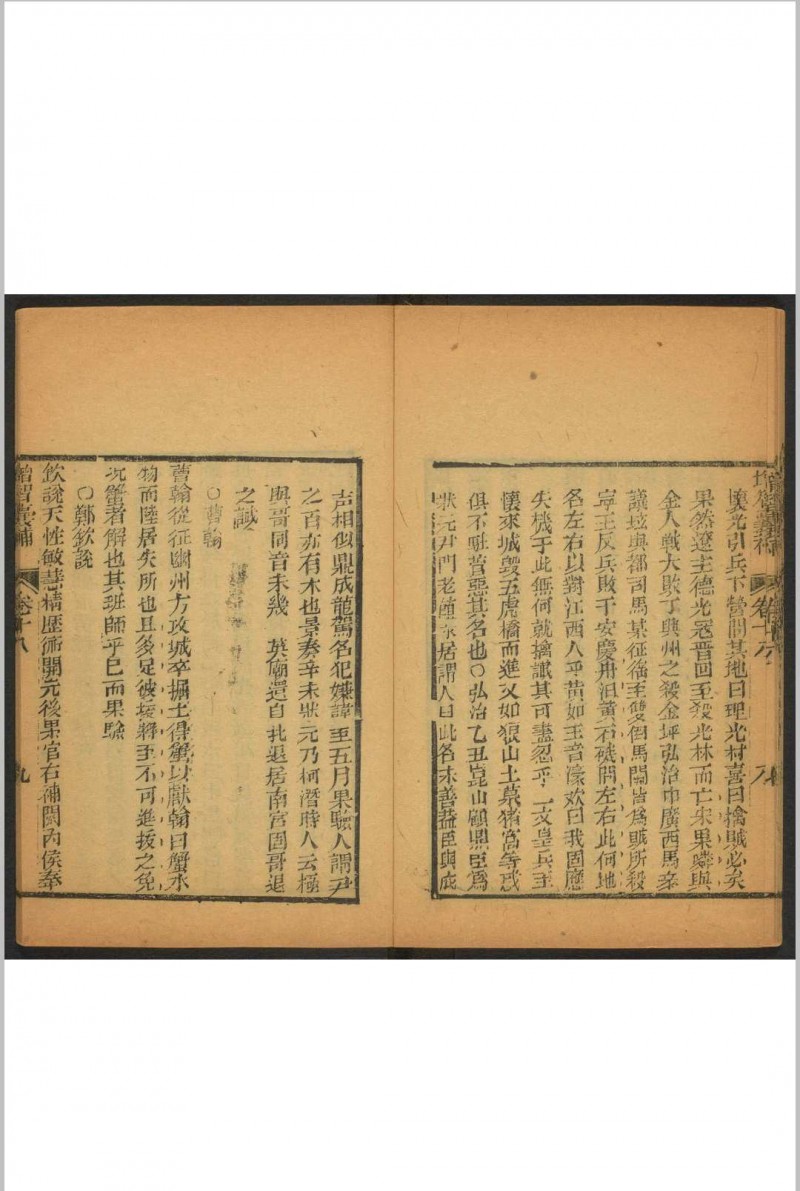 增智囊補 卷十八 八
懷光引兵下營問其地曰埋光村喜曰擒賊必矣
果然遼主德光冠晉回至殺光林而亡宋果與
金人戰大敗于興州之殺金坪弘治中廣西馬叅
議玹與都司馬某征徭至雙倒馬關皆為賊所殺
寧王反兵敗于安慶舟泊黃石磯問左右此何地
名左右以對江西人乎黃如王音濠欢曰我固應
失機于此無何就擒讖其可盡忽乎 文皇兵至
懷來城毀五虎橋而進又如狼山土墓猪窩等或
俱不駐營惡其名也〇弘治乙丑崑山顧鼎臣為
狀元尹門老 家居謂人曰此名未善蓋臣與成
声相似鼎成龍駕名犯嫌諱至五月果驗人謂尹
之言亦有木也景泰辛未狀元乃柯潛時人云柯
與哥同音未幾 英廟還自北退居南宮固哥退
之讖
〇曹翰
曹翰從征幽州方攻城卒掘土得蟹以獻翰曰蟹水
物而陸居失所也且多足彼援將至不可進拔之兆
况蟹者解也其班師乎已而果驗
〇鄭欽說
欽說天性敏慧精歷術開元後果官右補闕內侯奉
增智囊補 卷十八 九